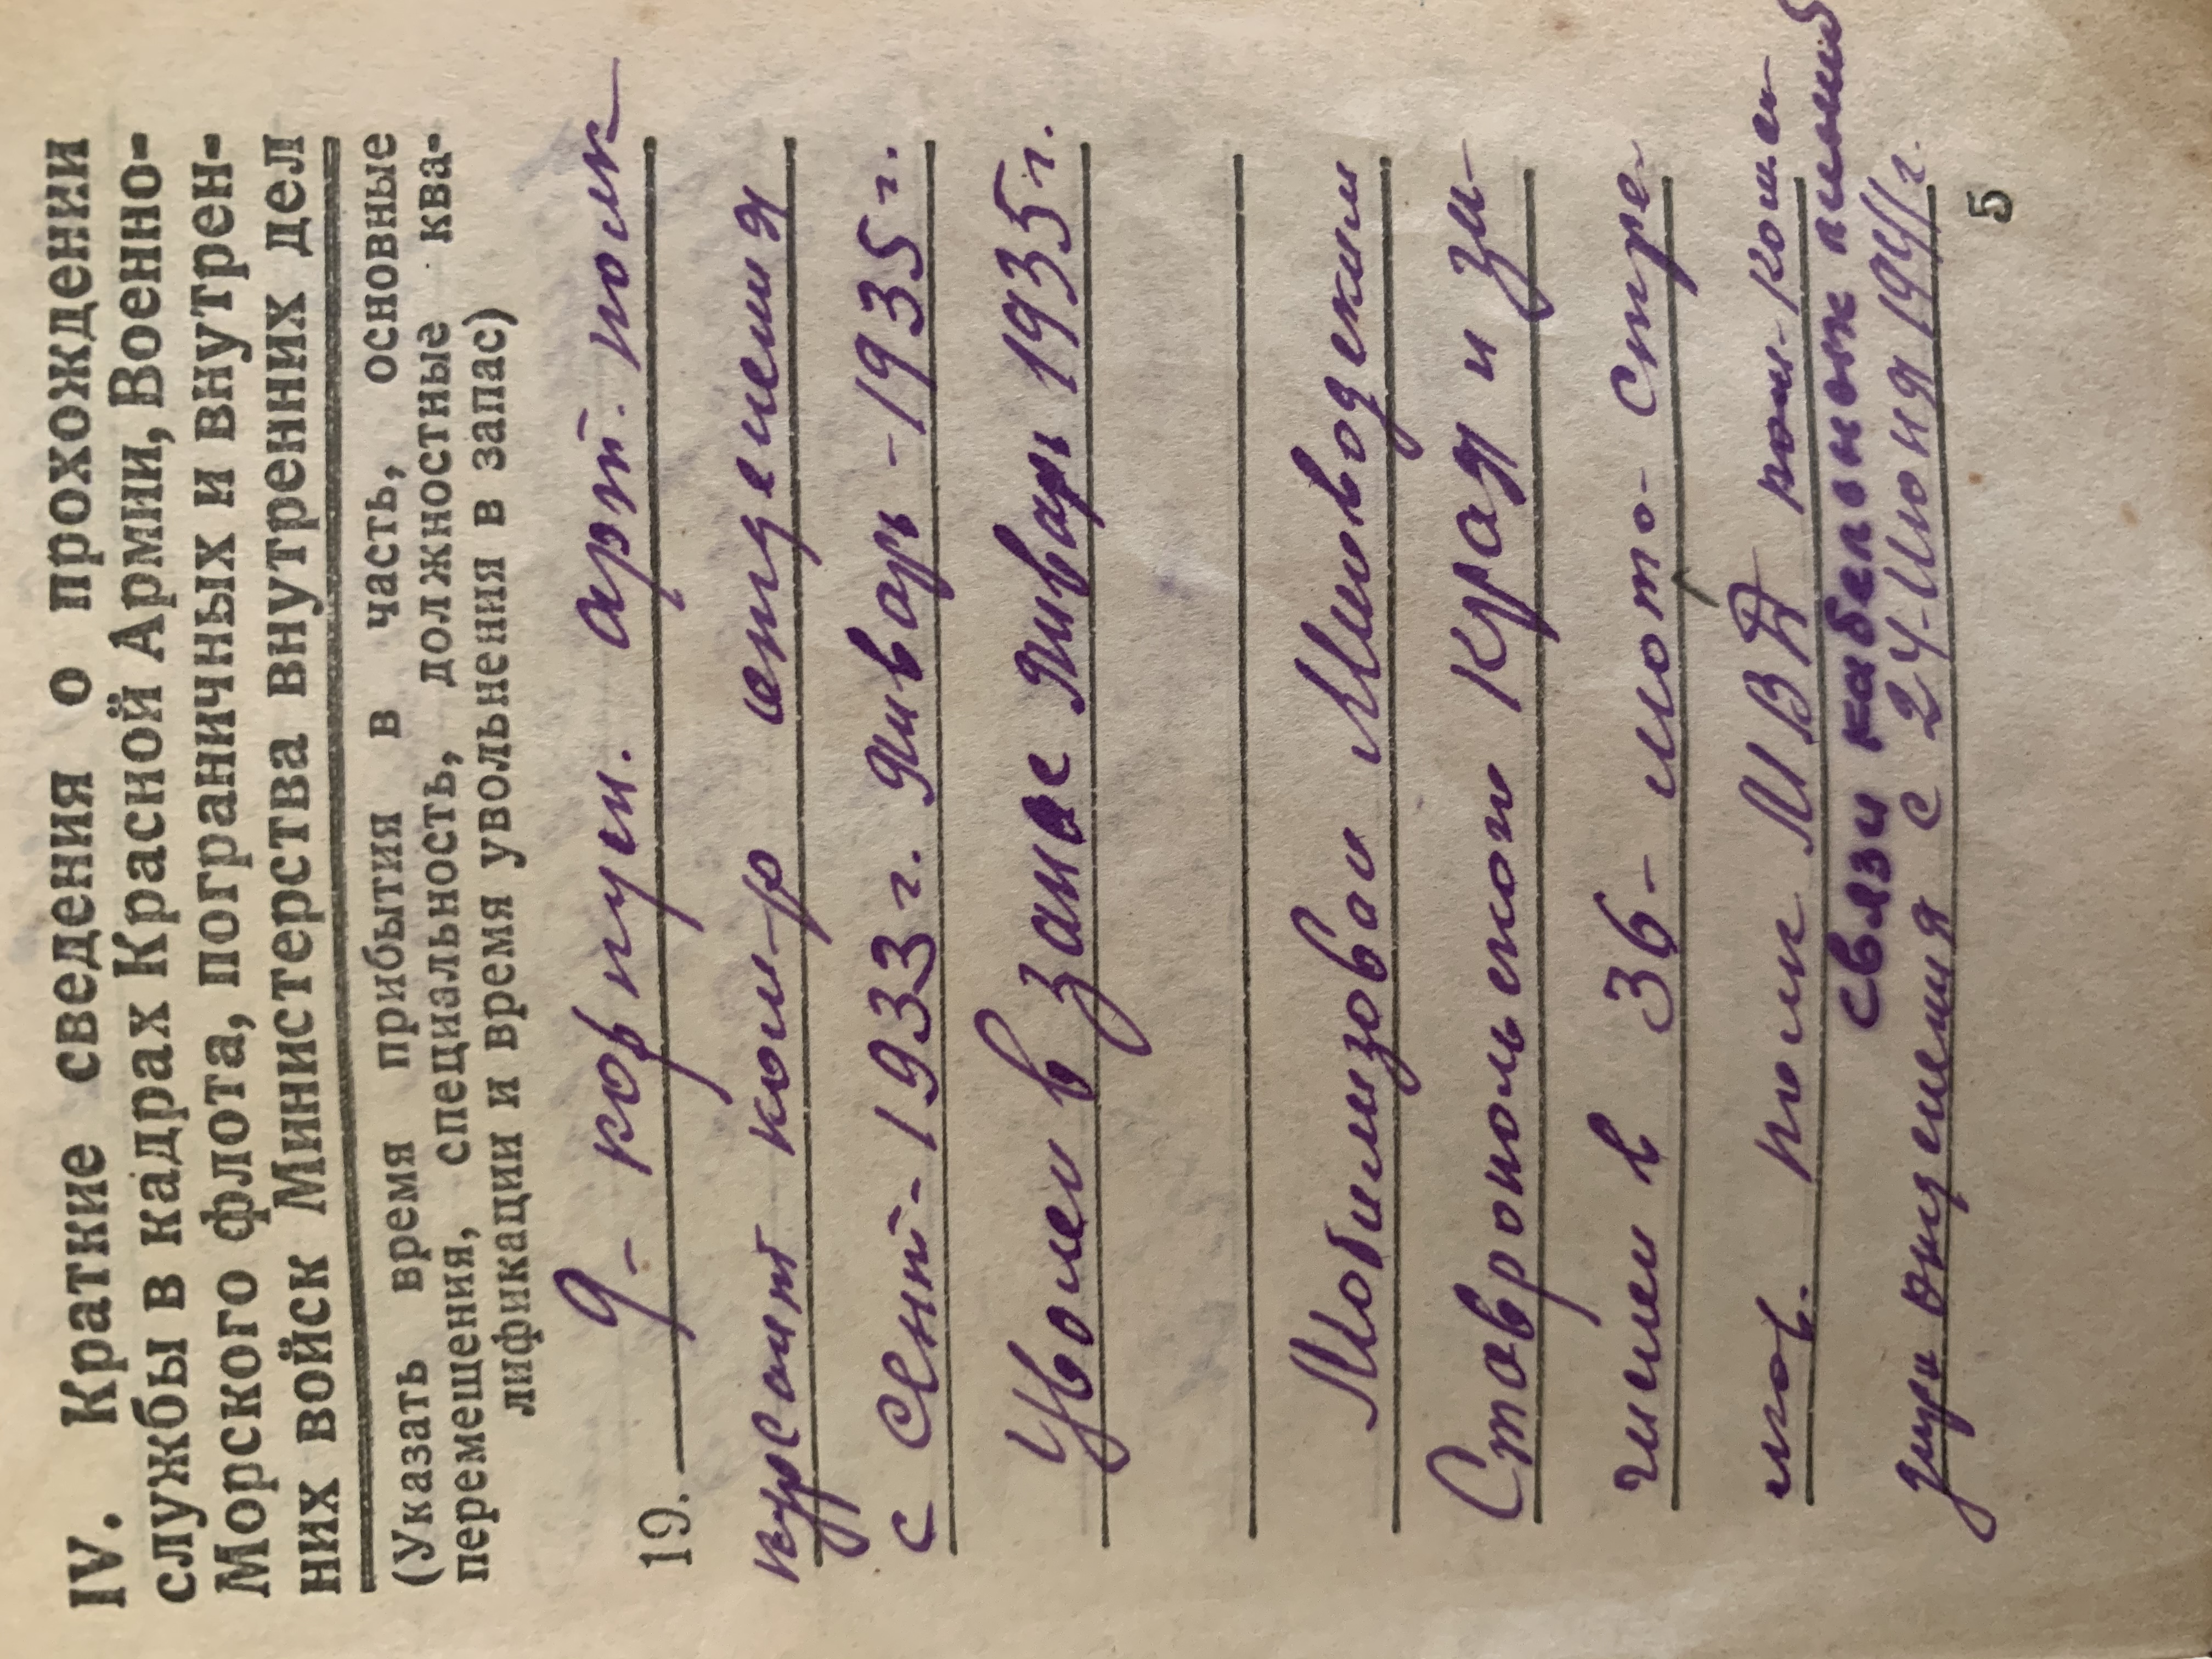 IV. Краткие сведения о прохождении
службы в кадрах Красной Армии, Военно-
Морского флота, пограничных и внутрен-
них войск Министерства внутренних дел
(Указать время прибытия в часть, основные
перемещения, специальность, должностные ква-
лификации и время увольнения в запас)
19. 9- корпусн. арт. полк
курсант ком-р отделения
с Сент-1933 г. Январь-1935 г.
Уволен в запас Январь 1935 г.
Мобилизован Минводским
Ставропольского Края и за-
числен в 36- мото-стре-
лков. полк МВД ком-
связи кабельнок линий
отделения с 24-Июня 1941 г.
5